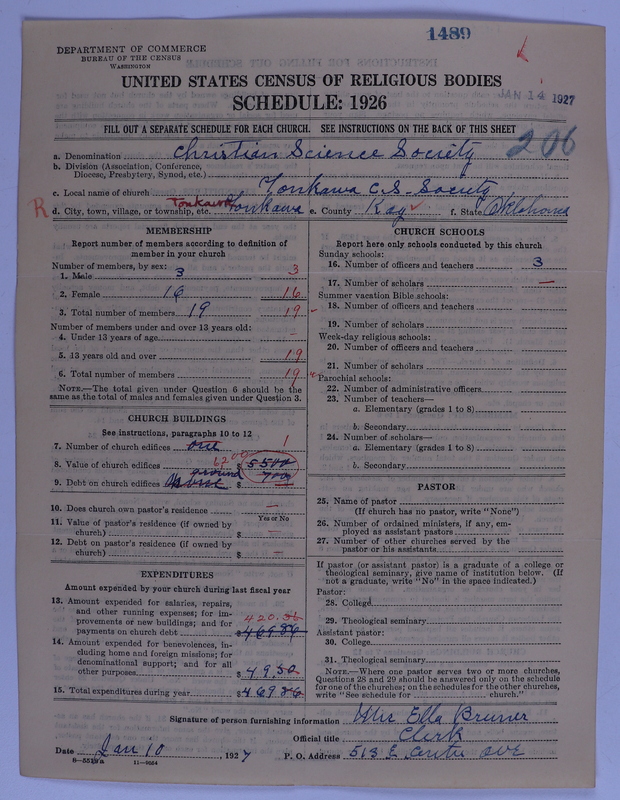 1489
DEPARTMENT OF COMMERCE
BUREAU OF THE CENSUS
WASHINGTON
UNITED STATES CENSUS OF RELIGIOUS BODIES
JAN 14 1927
SCHEDULE: 1926
FILL OUT A SEPARATE SCHEDULE FOR EACH CHURCH. SEE INSTRUCTIONS ON THE BACK OF THIS SHEET
206
a. Denomination Christian Science Society
b. Division (Association, Conference, Diocese, Presbytery, Synod, etc.)
c. Local name of church Tonkawa C.S. Society
R d. City, town, village, or township, etc. Tonkawa Tonkawa e. County Kay f. State Oklahoma
MEMBERSHIP
Report number of members according to definition of member in your church
Number of members, by sex:
1. Male 3 3
2. Female 16 16
3. Total number of members 19 19
Number of members under and over 13 years old:
4. Under 13 years of age –
5. 13 years old and over 19
6. Total number of members 19
NOTE.—The total given under Question 6 should be the same as the total of males and females given under Question 3.
CHURCH BUILDINGS
See instructions, paragraphs 10 to 12
7. Number of church edifices one 1
8. Value of church edifices 6200 $ 5500
ground
9. Debt on church edifices None $ 700
10. Does church own pastor's residence —
Yes or No
11. Value of pastor's residence (if owned by church) $ —
12. Debt on pastor's residence (if owned by church) $ —
EXPENDITURES
Amount expended by your church during last fiscal year
13. Amount expended for salaries, repairs, and other running expenses; for improvements or new buildings; and for payments on church debt 420.36 $ 469.86
14. Amount expended for benevolences, including home and foreign missions; for denominational support; and for all other purposes $ 49.50
15. Total expenditures during year $ 469.86
CHURCH SCHOOLS
Report here only schools conducted by this church
Sunday schools:
16. Number of officers and teachers 3
17. Number of scholars —
Summer vacation Bible schools:
18. Number of officers and teachers
19. Number of scholars
Week-day religious schools:
20. Number of officers and teachers
21. Number of scholars
Parochial schools:
22. Number of administrative officers
23. Number of teachers—
a. Elementary (grades 1 to 8)
b. Secondary
24. Number of scholars—
a. Elementary (grades 1 to 8)
b. Secondary
PASTOR
25. Name of pastor
(If church has no pastor, write "None")
26. Number of ordained ministers, if any, employed as assistant pastors
27. Number of other churches served by the pastor or his assistants
If pastor (or assistant pastor) is a graduate of a college or theological seminary, give name of institution below. (If not a graduate, write "No" in the space indicated.)
Pastor:
28. College
29. Theological seminary
Assistant pastor:
30. College
31. Theological seminary
NOTE.—Where one pastor serves two or more churches, Questions 28 and 29 should be answered only on the schedule for one of the churches; on the schedules for the other churches, write "See schedule for church."
Signature of person furnishing information Mrs Ella Bruner
Official title Clerk
Date Jan 10, 1927 P. O. Address 513 E. Centre Ave
8—5519 a 11—9064